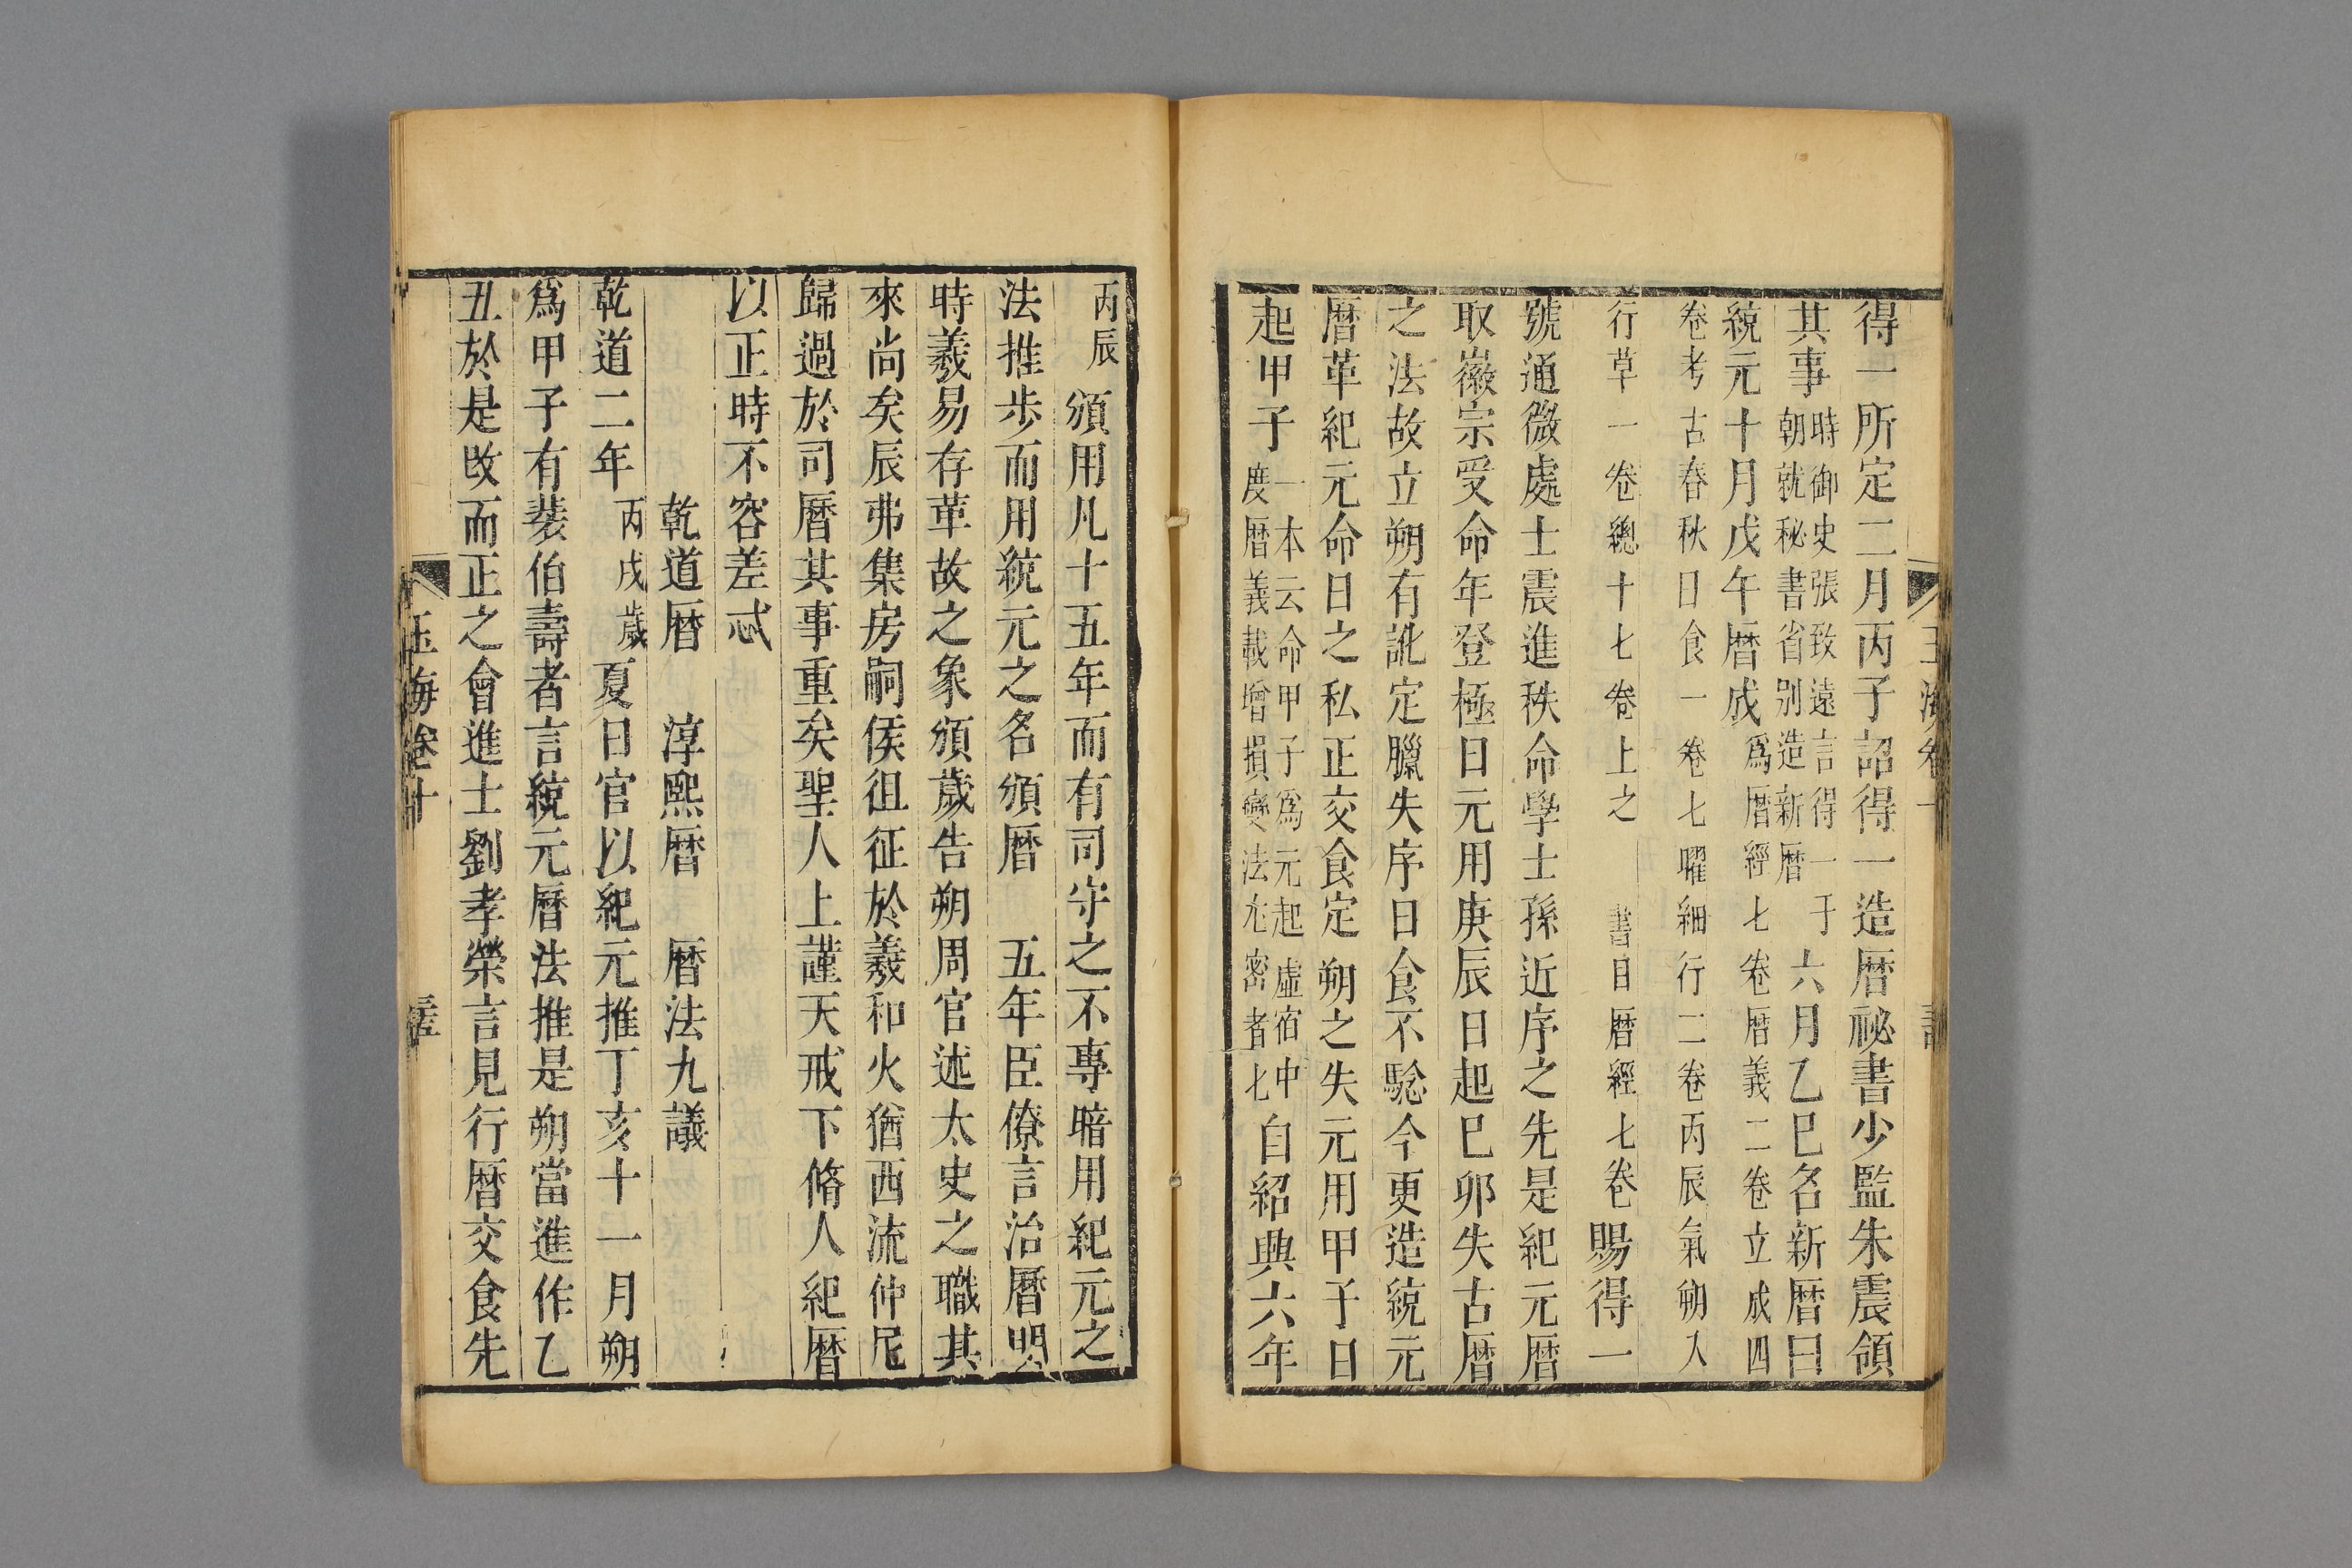 得一所定二月丙子詔得一造曆祕書少監朱震領
其事時御史張致遠言得一于朝就秘書省别造新曆六月乙巳名新曆曰
統元十月戊午曆成爲曆經七卷曆義二卷立成四
卷考古春秋日食一卷七曜細行二卷丙辰氣朔入
行草一卷總十七卷上之書目曆經七卷賜得一
號通微處士震進秩命學士孫近序之先是紀元曆
取徽宗受命年登極日元用庚辰日起巳卯失古曆
之法故立朔有訛定臘失序日食不驗今更造統元
曆革紀元命日之私正交食定朔之失元用甲子日
起甲子一本云命甲子爲元起虛宿中度曆義載增損變法尤密者七自紹興六年
丙辰頒用凡十五年而有司守之不專暗用紀元之
法推步而用統元之名頒曆 五年臣僚言治曆明
時羲易存革故之象頒歲告朔周官述太史之職其
來尚矣辰弗集房嗣侯徂征於羲和火猶西流仲尼
歸過於司曆其事重矣聖人上謹天戒下脩人紀曆
以正時不容差忒
乾道曆 淳熙曆 曆法九議
乾道二年丙戌歲夏日官以紀元推丁亥十一月朔
爲甲子有裴伯壽者言統元曆法推是朔當進作乙
丑於是改而正之會進士劉孝榮言見行曆交食先
玉海卷十